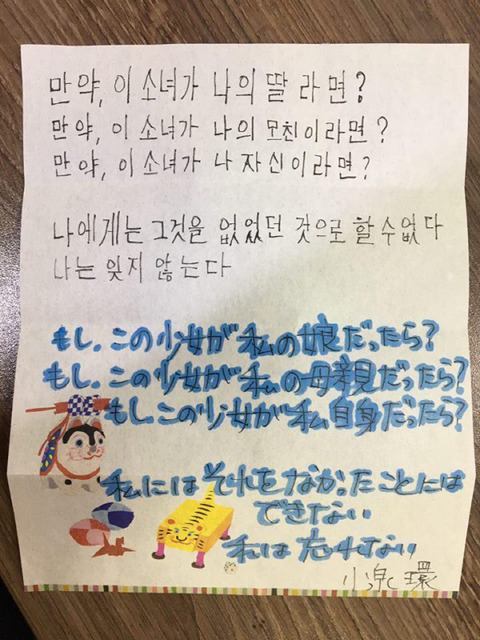 만약, 이 소녀가 나의 딸 라면?
만약, 이 소녀가 나의 모친이라면?
만약, 이 소녀가 나 자신이라면?
나에게는 그것을 없었던 것으로 할 수 없다
나는 잊지 않는다
もし、この少女が私の娘だったら?
もし、この少女が私の母親だったら?
もし、この少女が私自身だったら?
私にはそれをなかったことには
できない
私は忘れない
小泉 環